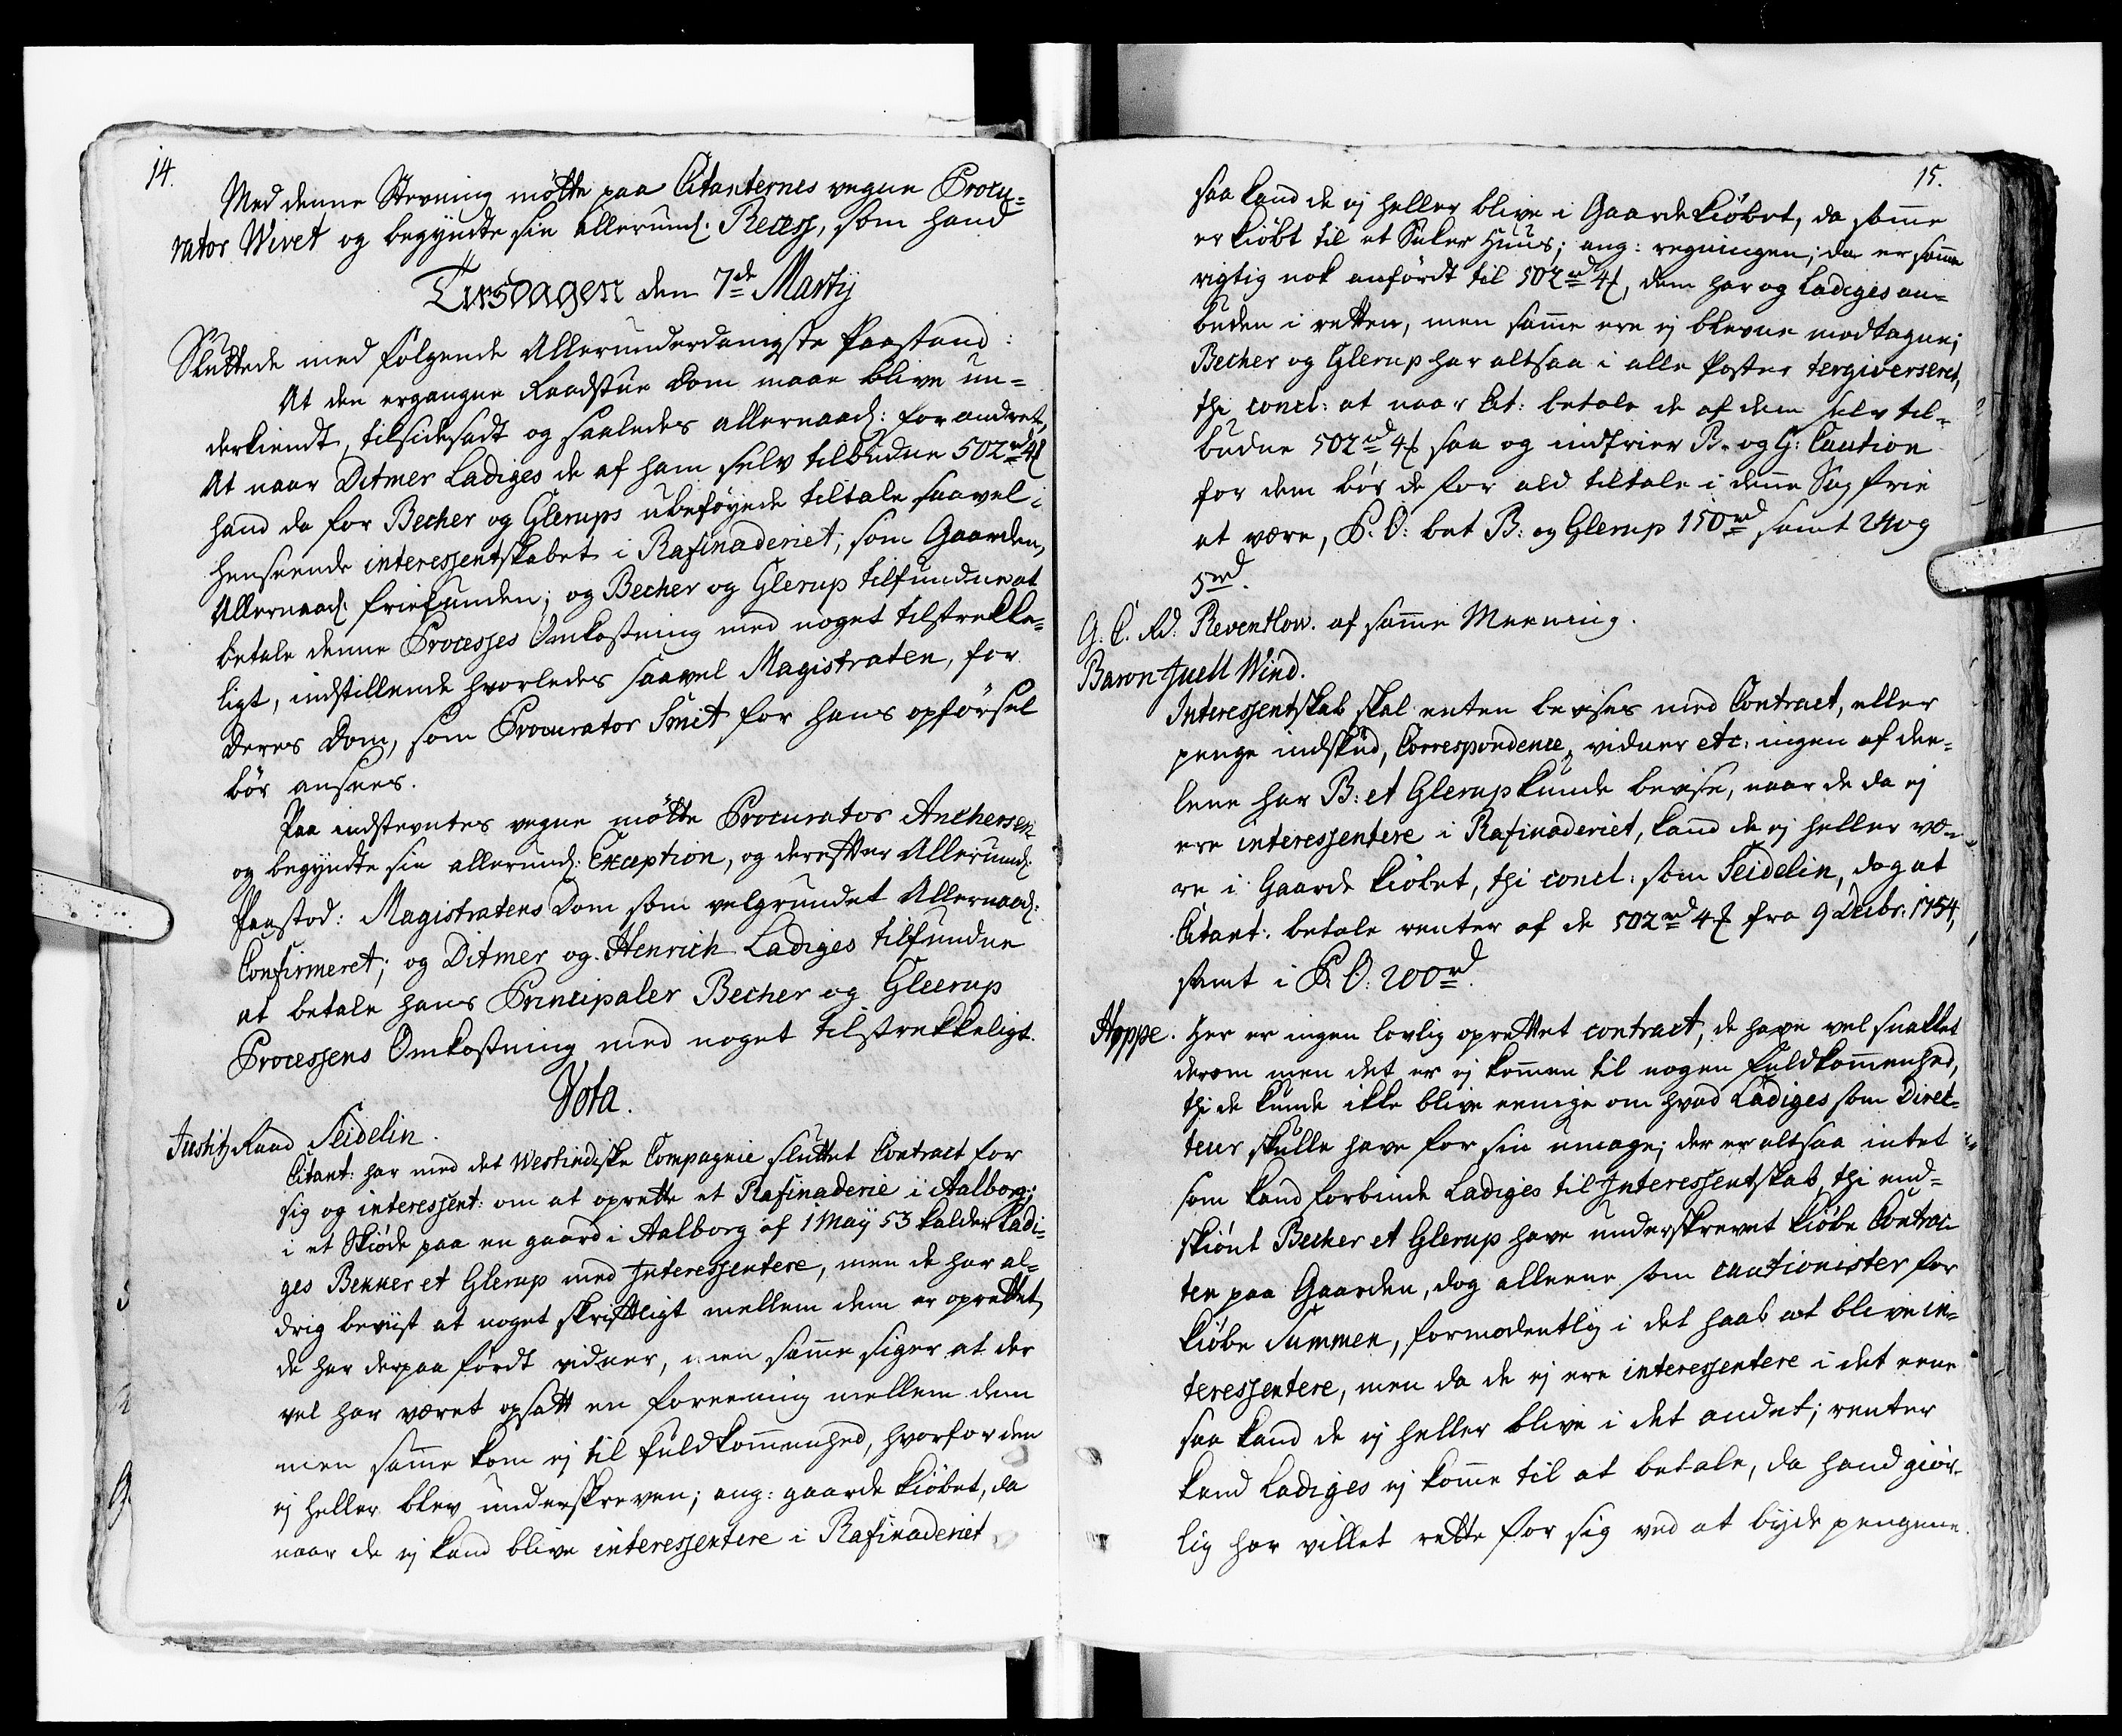 14.
Med denne Stevning mötte paa Citanternes vegne Procu=
rator Wivet og begyndte sin allerund: Recess, som hand
Tirsdagen den 7de Martij
Sluttede med følgende Allerunderdanigste Paastand:
At den ergangne Raadstue Dom maae blive un=
derkiendt, tilsidesadt og saaledes allernaad: forandret,
At naar Ditmer Ladiges de af ham selv tilbudne 502rd 4ß
hand da for Becher og Glerups ubeföyede tiltale saavel i
henseende interessentskabet i Rafinaderiet, som Gaarden,
Allernaad: friefunden; og Becher og Glerup tilfundne at
betale denne Processes Omkostning med noget tilstrekke=
ligt, indstillende hvorledes saavel Magistraten, for
deres Dom, som Procurator Smit for hans opförsel
bör ansees.
Paa indstevntes vegne mötte Procurator Anchersen
og begyndte sin allerund: Exception, og derefter Allerund:
Paastod: Magistratens Dom som velgrundet Allernaad:
Confirmeret; og Ditmer og Henrich Ladiges tilfundne
at betale hans Principaler Becher og Gleerup
Processens Omkostning med noget tilstrekkeligt.
Vota.
Justitz Raad Seidelin.
Citant: har med det Westindiske Compagnie sluttet Contract for
sig og interessent: om at oprette et Rafinaderie i Aalborg;
i et Skiöde paa en gaard i Aalborg af 1 Maÿ 53 kalder Ladi=
ges Bekker et Glerup med Interessentere, men de har al=
drig beviist at noget skriftligt mellem dem er oprettet,
de har derpaa fördt vidner, men samme siger at der
vel har været opsatt en foreening mellem dem
men samme kom ej til fuldkommenhed, hvorfor den
ej heller blev underskreven; ang: gaarde kiöbet, da
naar de ej kand blive interessentere i Rafinaderiet
15.
saa kand de ej heller blive i Gaarde kiöbet, da samme
er kiöbt til et Suker Huus; ang: regningen; da er samme
rigtig nok anfördt til 502rd 4ß, dem har og Ladiges an=
buden i retten, men samme ere ej blevne modtagne;
Becher og Glerup har altsaa i alle Poster tergiverseret,
thi concl: at naar Cit: betale de af dem selv til=
budne 502rd 4ß saa og indfrier B. og G: Caution
for dem bör de for ald tiltale i denne Sag frie
at være, P. O: bet B: og Glerup 150rd samt
5rd.
G. C. Rd: Reventlow. af samme Meening.
Baron Juell Wind.
Interessentskab skal enten bevises med Contract, eller
penge indskud, Correspondence, vidner etc: ingen af dee=
lene har B: et Glerup kunde bevise, naar de da ej
ere interessentere i Rafinaderiet, kand de ej heller væ=
re i Gaarde kiöbet, thi concl: som Seidelin, dog at
Citant: betale renter af de 502rd 4ß fra 9 Decbr: 1754,
samt i P. O: 200rd.
Hoppe. Her er ingen lovlig oprettet contract, de have vel snakket
derom men det er ej kommen til nogen fuldkommenhed,
thi de kunde ikke blive eenige om hvad Ladiges som Direc=
teur skulle have for sin umage; der er altsaa intet
som kand forbinde Ladiges til Interessentskab, thi end=
skiönt Becher et Glerup have underskrevet kiöbe Contrac=
ten paa Gaarden, dog alleene som cautionister for
kiöbe Summen, formodentlig i det haab at blive in=
teressentere, men da de ej ere interessentere i det eene
saa kand de ej heller blive i det andet; renter
kand Ladiges ej komme til at betale, da hand giör=
lig har villet rette for sig ved at byde pengene.